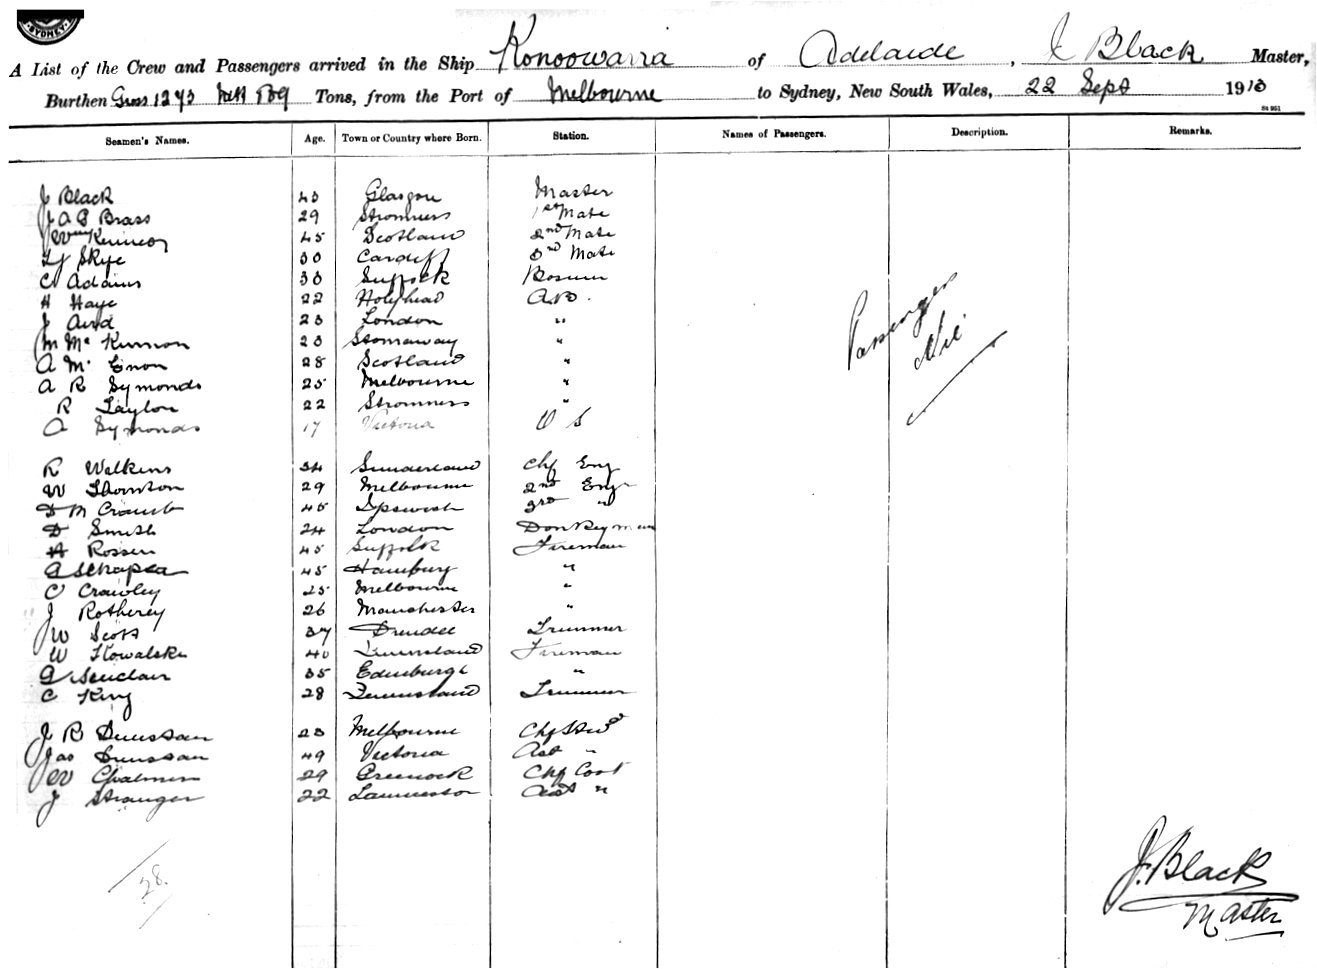 SYDNEY
A List of the Crew and Passengers arrived in the Ship Konoowarra of Adelaide, J Black Master,
Burthen Gross 1273 Nett Tons, from the Port of Melbourne to Sydney, New South Wales, 22 Sept 1910
Seamen's Names. Age. Town or Country where Born. Station. Names of Passengers. Description. Remarks.
J Black 43 Glasgow Master
J A G Brass 29 Stromness 1st Mate
45 Scotland 2nd Mate
Skye 30 Cardiff 3rd Mate
C Adams 33 Suffolk Bosun
H Haye 22 Holyhead AB.
J Aird 23 London "
M Mc Kinnon 23 Stornaway "
A Mc 28 Scotland "
A R Symonds 25 Melbourne "
R Taylor 22 Stromness "
A Symonds 17 Victoria O S
Passengers
Nil
R Watkins 34 Sunderland Chf Eng
W Thornton 29 Melbourne 2nd Engr
D M 45 Ipswich 3rd "
D Smith 24 London Donkeyman
A Rossen 45 Suffolk Fireman
G Schapea 45 Hamburg "
C Crawley 25 Melbourne "
J Rotherey 26 Manchester "
W Scott 37 Dundee Trimmer
W Kowalski 40 Queensland Fireman
G Sinclair 35 Edinburgh "
C King 28 Queensland Trimmer
J R 23 Melbourne Chf Stwd
Jas 49 Victoria Asst "
W Chalmers 29 Greenock Chf Cook
J Stranger 22 Launceston Asst "
28.
J. Black
Master